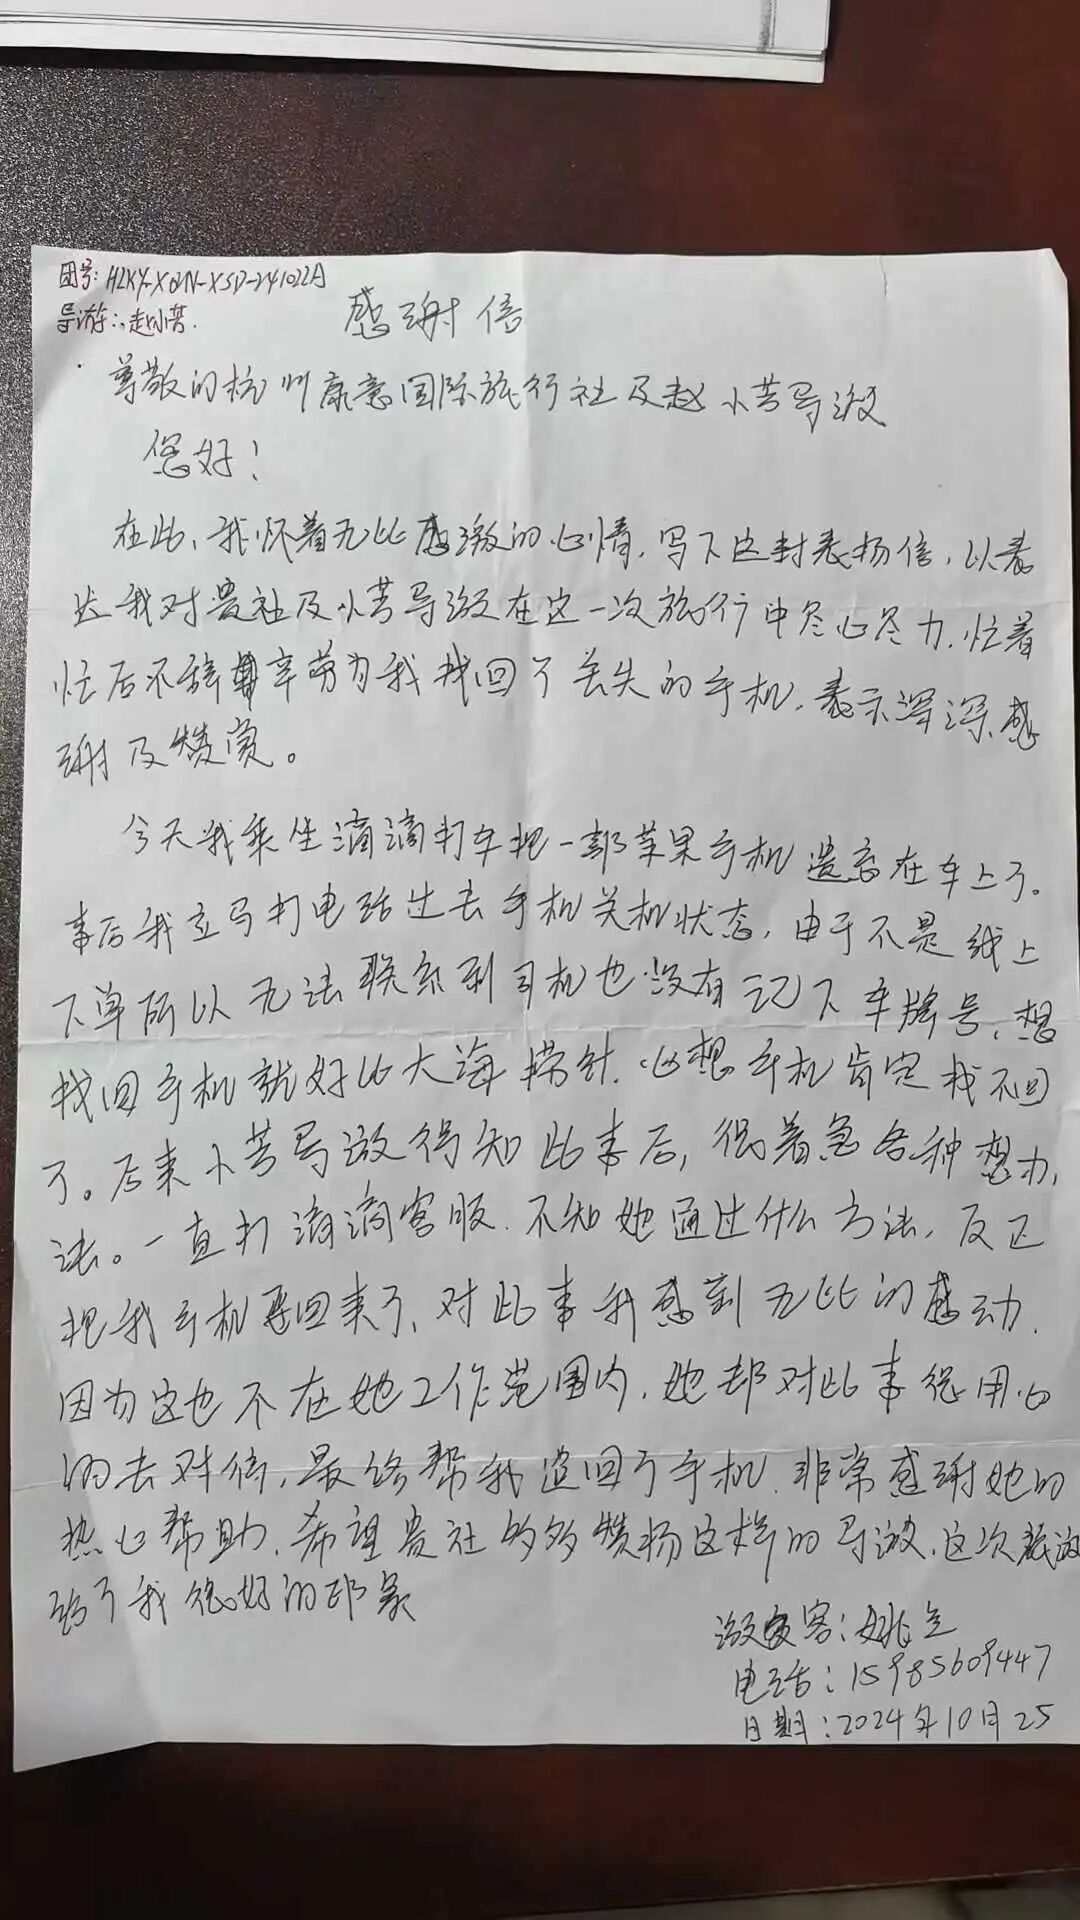 团号: HZKY-XDLN-XSD-241022A
导游: 赵小苦.
感谢信
尊敬的杭州康意国际旅行社及赵小苦导游
您好!
在此、我怀着无比感激的心情,写下这封表扬信,以表
达我对贵社及小苦导游在这一次旅行中尽心尽力,忙着
忙后不辞辛劳为我找回了丢失的手机,表示深深感
谢及赞赏。
今天我乘坐滴滴打车把一部苹果手机遗忘在车上了。
事后我立马打电话过去手机关机状态,由于不是线上
下单所以无法联系到司机也没有记下车牌号,想
找回手机就好比大海捞针,心想手机肯定找不回
了。后来小苦导游得知此事后,很着急各种想办
法。一直打滴滴客服,不知她通过什么方法,反正
把我手机要回来了,对此事我感到无比的感动.
因为这也不在她工作范围内,她却对此事很用心
的去对待,最终帮我追回了手机.非常感谢她的
热心帮助,希望贵社多多赞扬这样的导游,这次旅游
给了我很好的印象
游客:姚立
电话:15985609447
日期:2024年10月25